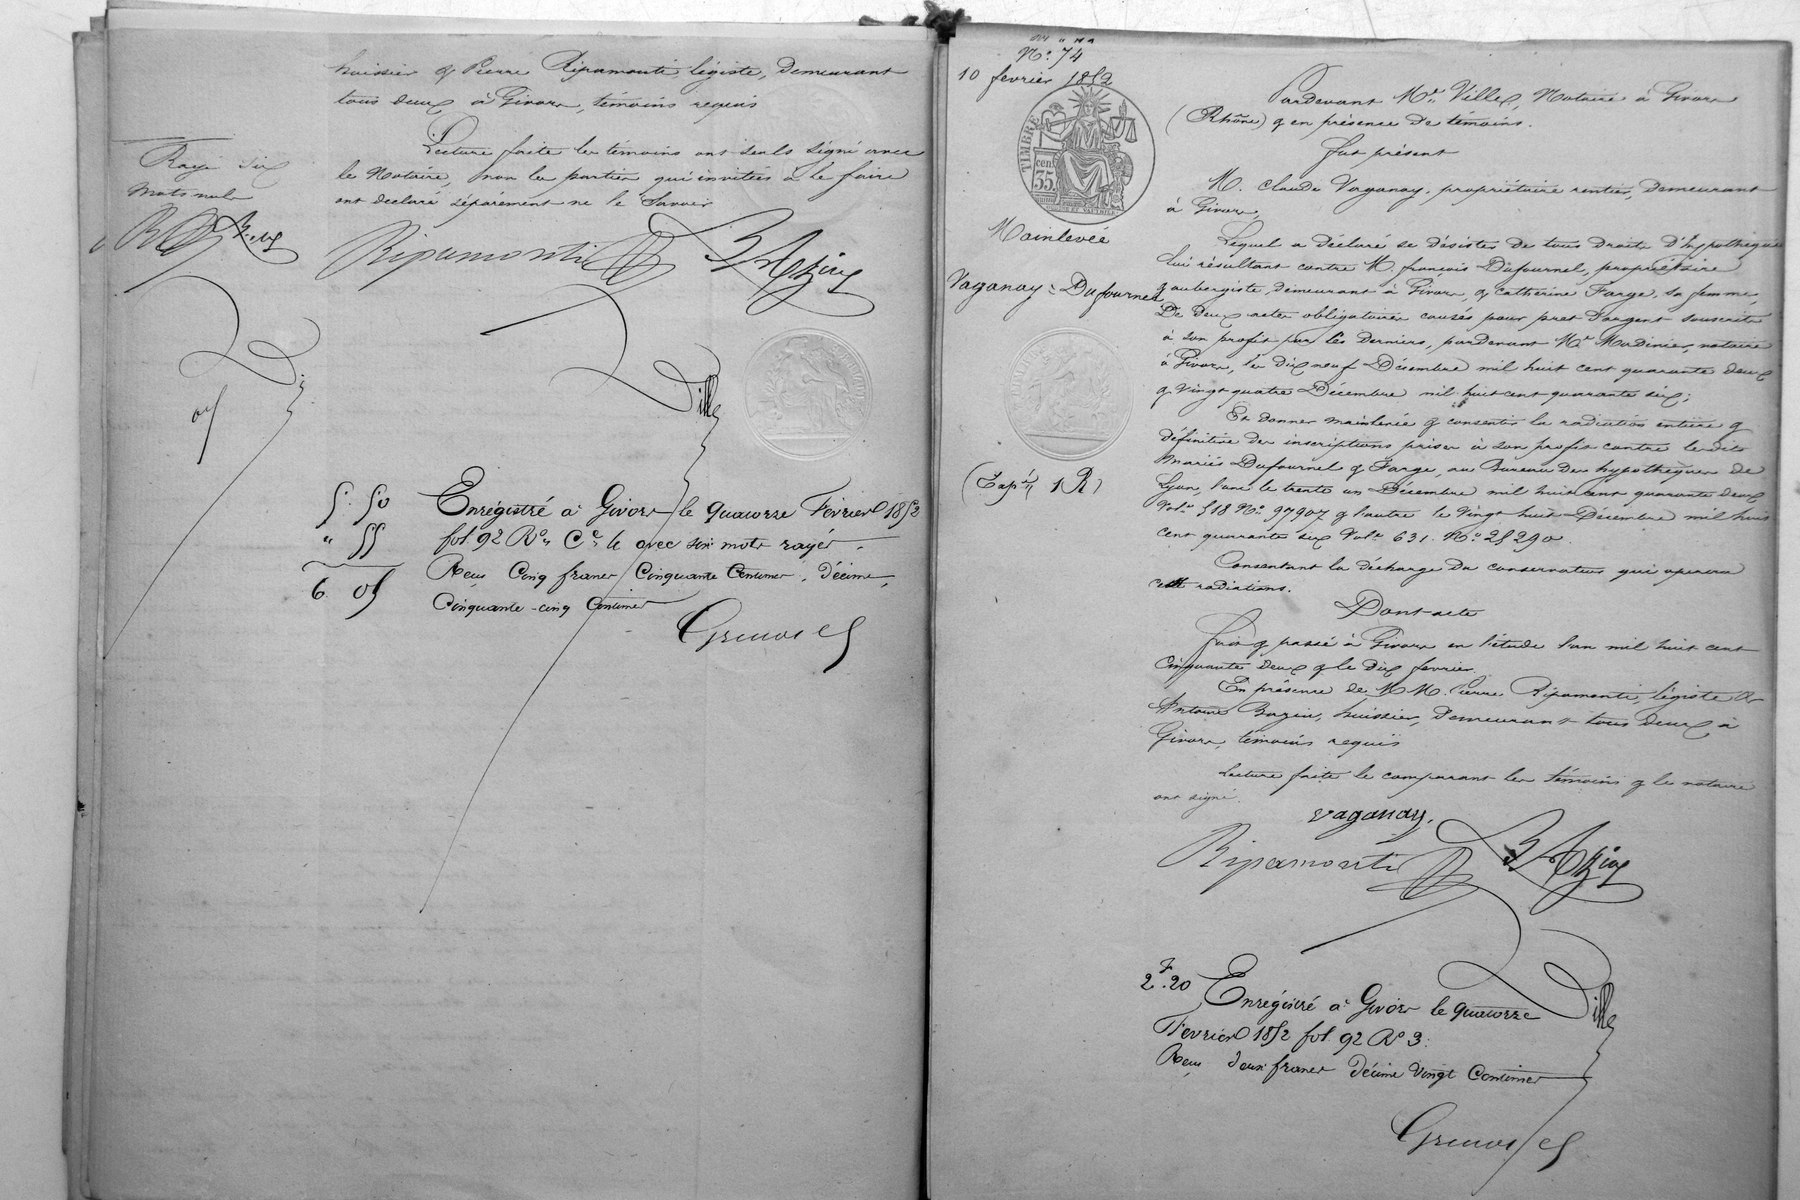 huissier & Pierre Ripamonti légiste, demeurant
tous deux à Givors, témoins requis
Lecture faite les témoins ont seuls signé avec
le Notaire, non les parties qui invitées à le faire
ont déclaré séparément ne le savoir
Rayé six
mots nuls
Ripamonti
Bazin
Ville
5. 50
" 55
6 05
Enrégistré à Givors le quatorze Février 1852
fol. 92 Ro, Ce 4 avec six mots rayés.
Reçu Cinq francs Cinquante Centimes, décime,
Cinquante-cinq Centimes
No 74
10 fevrier 1852
TIMBRE
35
cen.
Mainlevée
Vaganay = Dufournel
(Expén 1 R)
Pardevant Me Ville, Notaire à Givors
(Rhône) & en présence de témoins.
Fut présent
M. Claude Vaganay, propriétaire rentier, demeurant
à Givors,
Lequel a déclaré se désister de tous droits d'hypothèque
lui résultant contre M. françois Dufournel, propriétaire
& aubergiste, demeurant à Givors, & Catherine Farge, sa femme,
De deux actes obligatoires causés pour pret d'argent souscrits
à son profit par ces derniers, pardevant Me Madinier, notaire
à Givors, les dix neuf Décembre mil huit cent quarante deux
& vingt quatre Décembre mil huit cent quarante six;
Et donner mainlevée & consentir la radiation entière &
définitive des inscriptions prises à son profit contre lesdits
Mariés Dufournel & Farge, au Bureau des hypothèques de
Lyon, l'une le trente un Décembre mil huit cent quarante deux
Vole 518 No 97907 & l'autre le vingt huit Décembre mil huit
cent quarante six Vole 631. No 25290.
Consentant la décharge du conservateur qui opérera
cette radiations.
Dont acte
Fait & passé à Givors en l'étude l'an mil huit cent
Cinquante deux & le dix fevrier.
En présence de MM. Pierre Ripamonti, légiste &
Antoine Bazin, huissier, demeurant tous deux à
Givors, témoins requis
Lecture faite le comparant les témoins & le notaire
ont signé.
Vaganay.
Ripamonti
Bazin
Ville
2 F. 20
Enrégistré à Givors le quatorze
Février 1852 fol. 92 Ro 3.
Reçu deux francs décime vingt Centimes